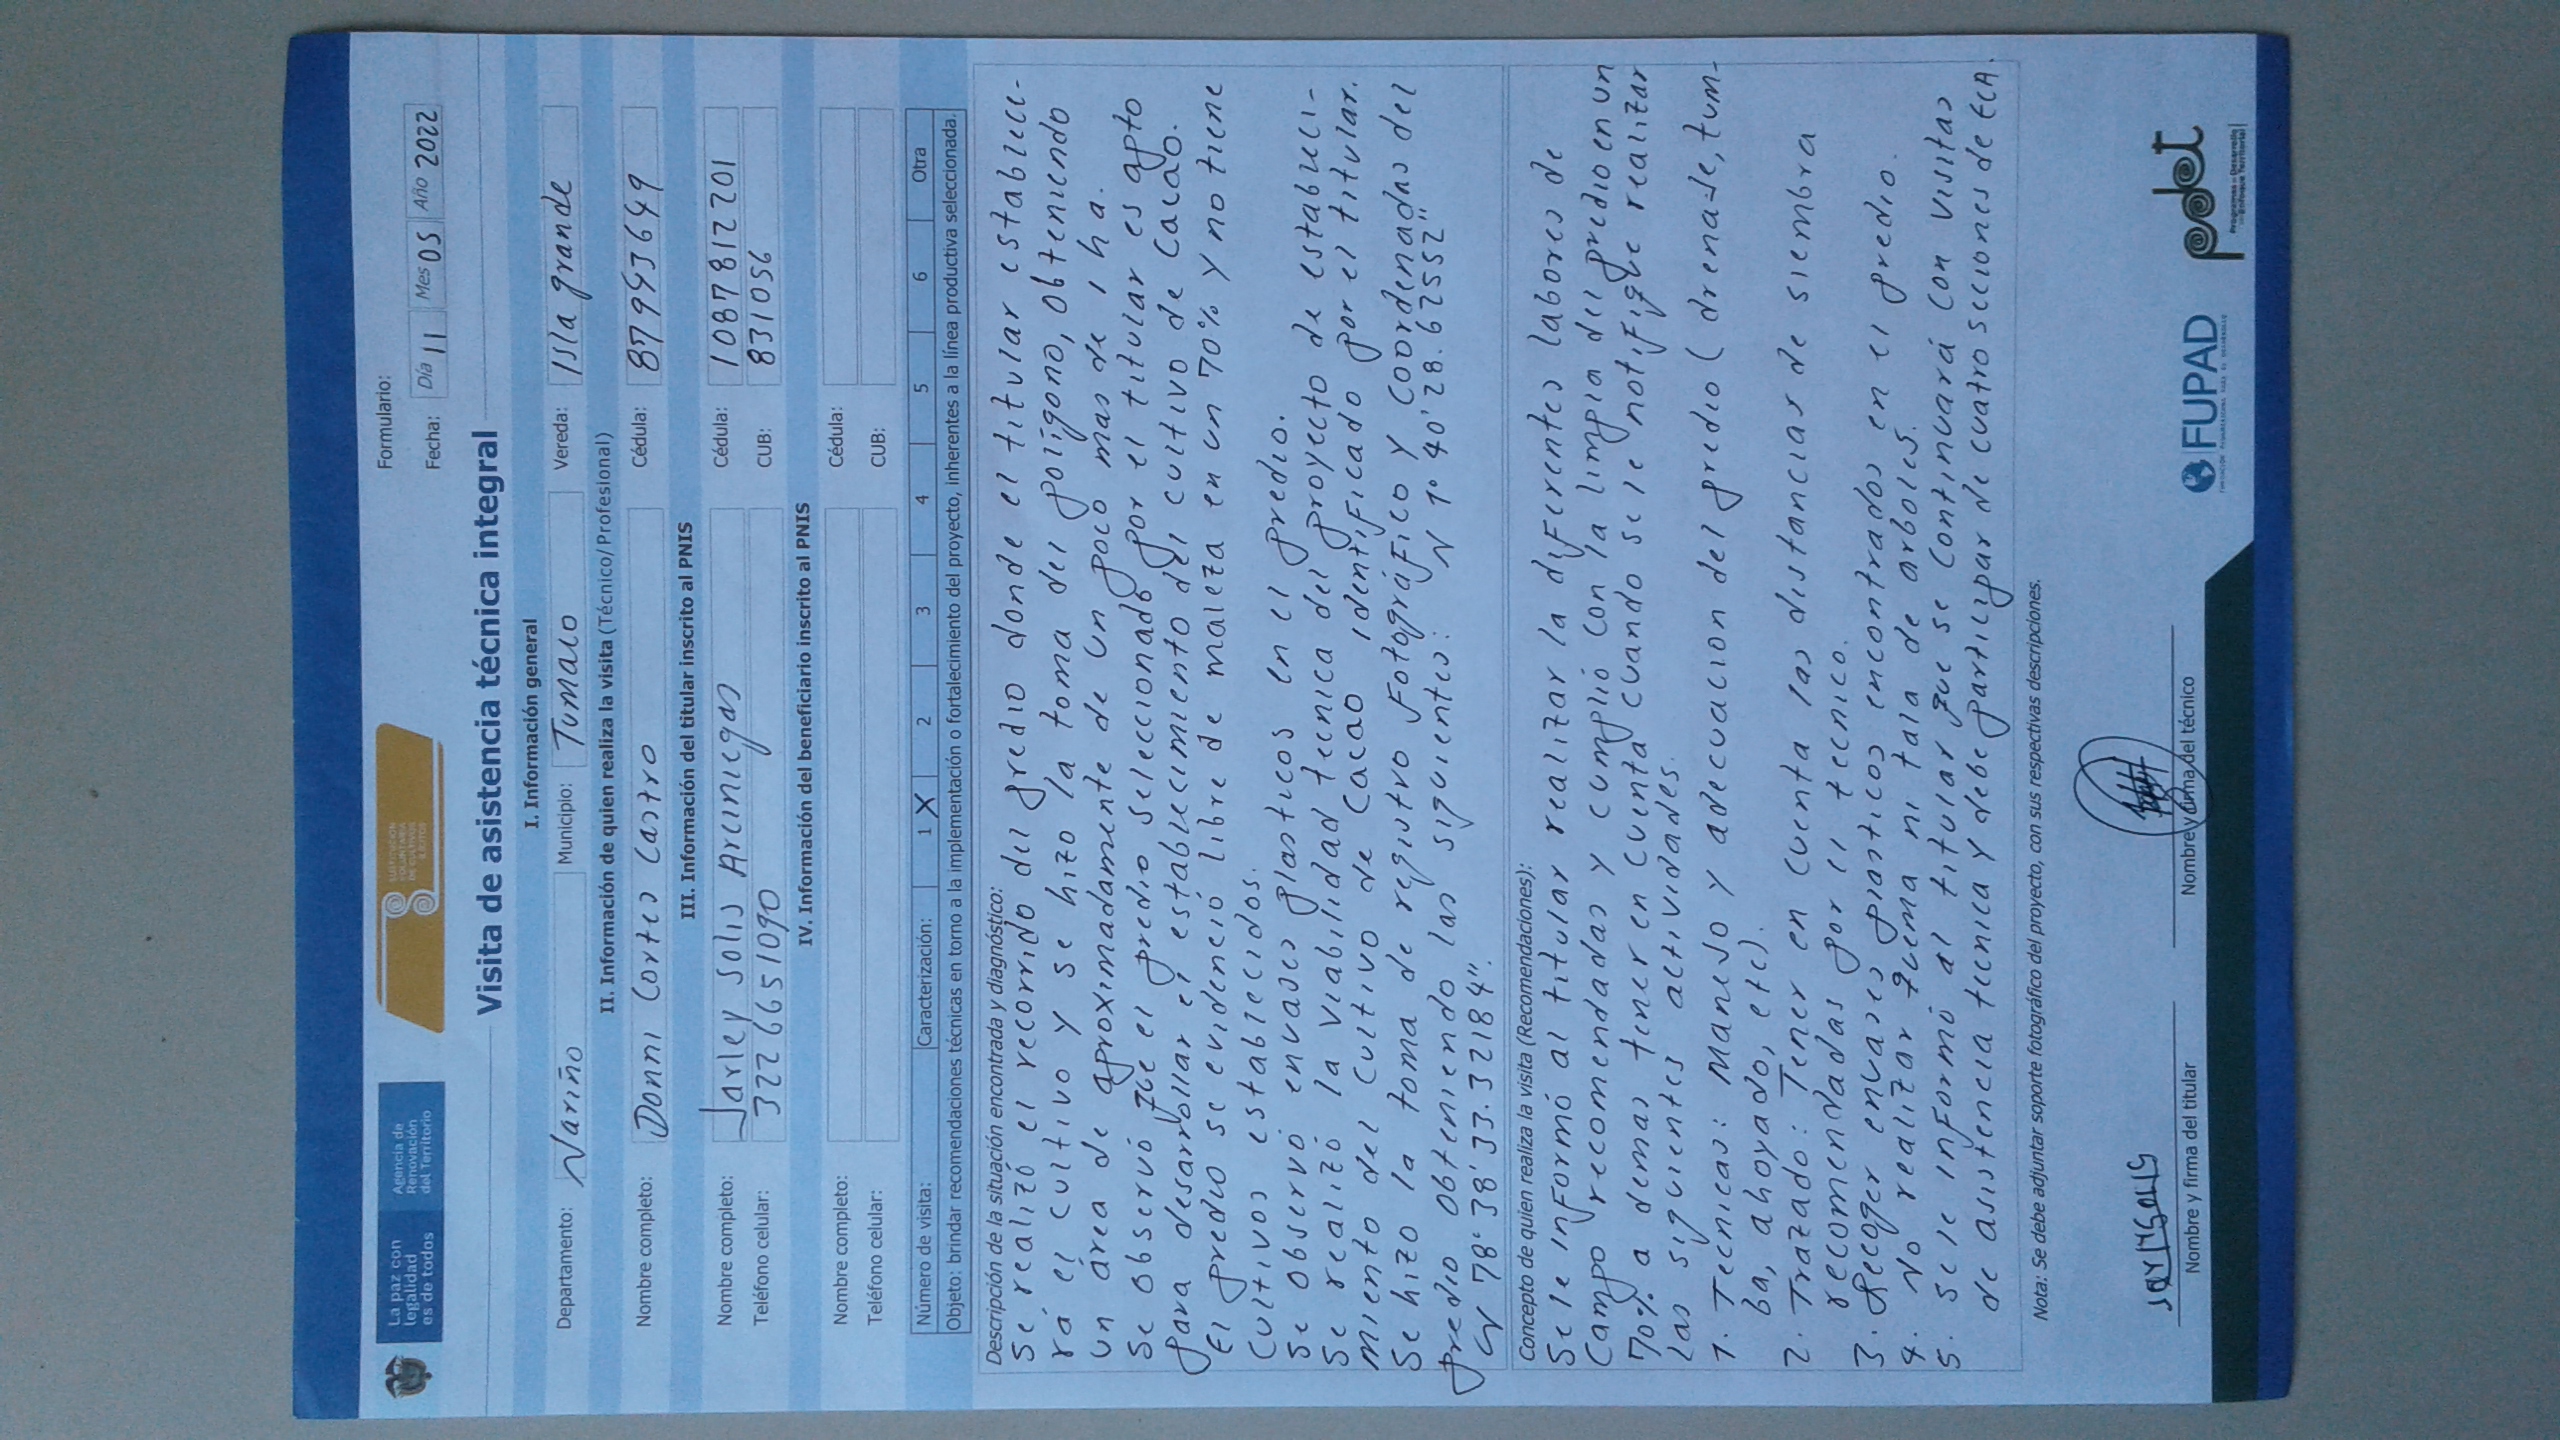 La paz con
legalidad
es de todos
Agencia de
Renovación
del Territorio
SUSTITUCIÓN
VOLUNTARIA
DE CULTIVOS
ILÍCITOS
Formulario:
Fecha: Día 11 Mes 05 Año 2022
Visita de asistencia técnica integral
I. Información general
Departamento: Nariño Municipio: Tumaco Vereda: Isla grande
II. Información de quien realiza la visita (Técnico/Profesional)
Nombre completo: Donni Cortes Castro Cédula:
III. Información del titular inscrito al PNIS
Nombre completo: Jarley Solis Arciniegas Cédula: 1087812201
Teléfono celular: 3226651090 CUB: 831056
IV. Información del beneficiario inscrito al PNIS
Nombre completo: Cédula:
Teléfono celular: CUB:
Número de visita: Caracterización: 1 X 2 3 4 5 6 Otra
Objeto: brindar recomendaciones técnicas en torno a la implementación o fortalecimiento del proyecto, inherentes a la línea productiva seleccionada.
Descripción de la situación encontrada y diagnóstico:
Se realizó el recorrido del predio donde el titular establece-
rá el cultivo y se hizo la toma del polígono, obteniendo
un área de aproximadamente de un poco mas de 1 ha.
Se observó que el predio seleccionado por el titular es apto
para desarrollar el establecimiento del cultivo de Cacao.
El predio se evidenció libre de maleza en un 70% y no tiene
Cultivos establecidos.
Se observó envases plasticos en el predio.
Se realizó la viabilidad tecnica del proyecto de estableci-
miento del Cultivo de Cacao identificado por el titular.
Se hizo la toma de registro Fotográfico y Coordenadas del
predio obteniendo las siguientes: N 1° 40' 28.67552"
W 78° 38' 33.32184".
Concepto de quien realiza la visita (Recomendaciones):
Se le informó al titular realizar la diferentes labores de
Campo recomendadas y cumplió con la limpia del predio en un
70% a demas tener en cuenta cuando se le notifique realizar
las siguientes actividades.
1. Tecnicas: Manejo y adecuacion del predio (drenaje, tum-
ba, ahoyado, etc).
2. Trazado: Tener en cuenta las distancias de siembra
recomendadas por el tecnico.
3. Recoger envases plasticos encontrados en el predio.
4. No realizar quema ni tala de arboles.
5. Se le informó al titular que se continuará con visitas
de asistencia tecnica y debe participar de cuatro secciones de ECA.
Nota: Se debe adjuntar soporte fotográfico del proyecto, con sus respectivas descripciones.
Nombre y firma del titular
Nombre y firma del técnico
FUPAD
pdet
Programas de Desarrollo
con Enfoque Territorial